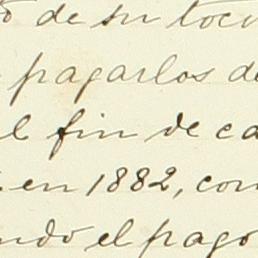 de su tocu
pagarlos de
el fin de ca
en 1882, con
ndo el pago